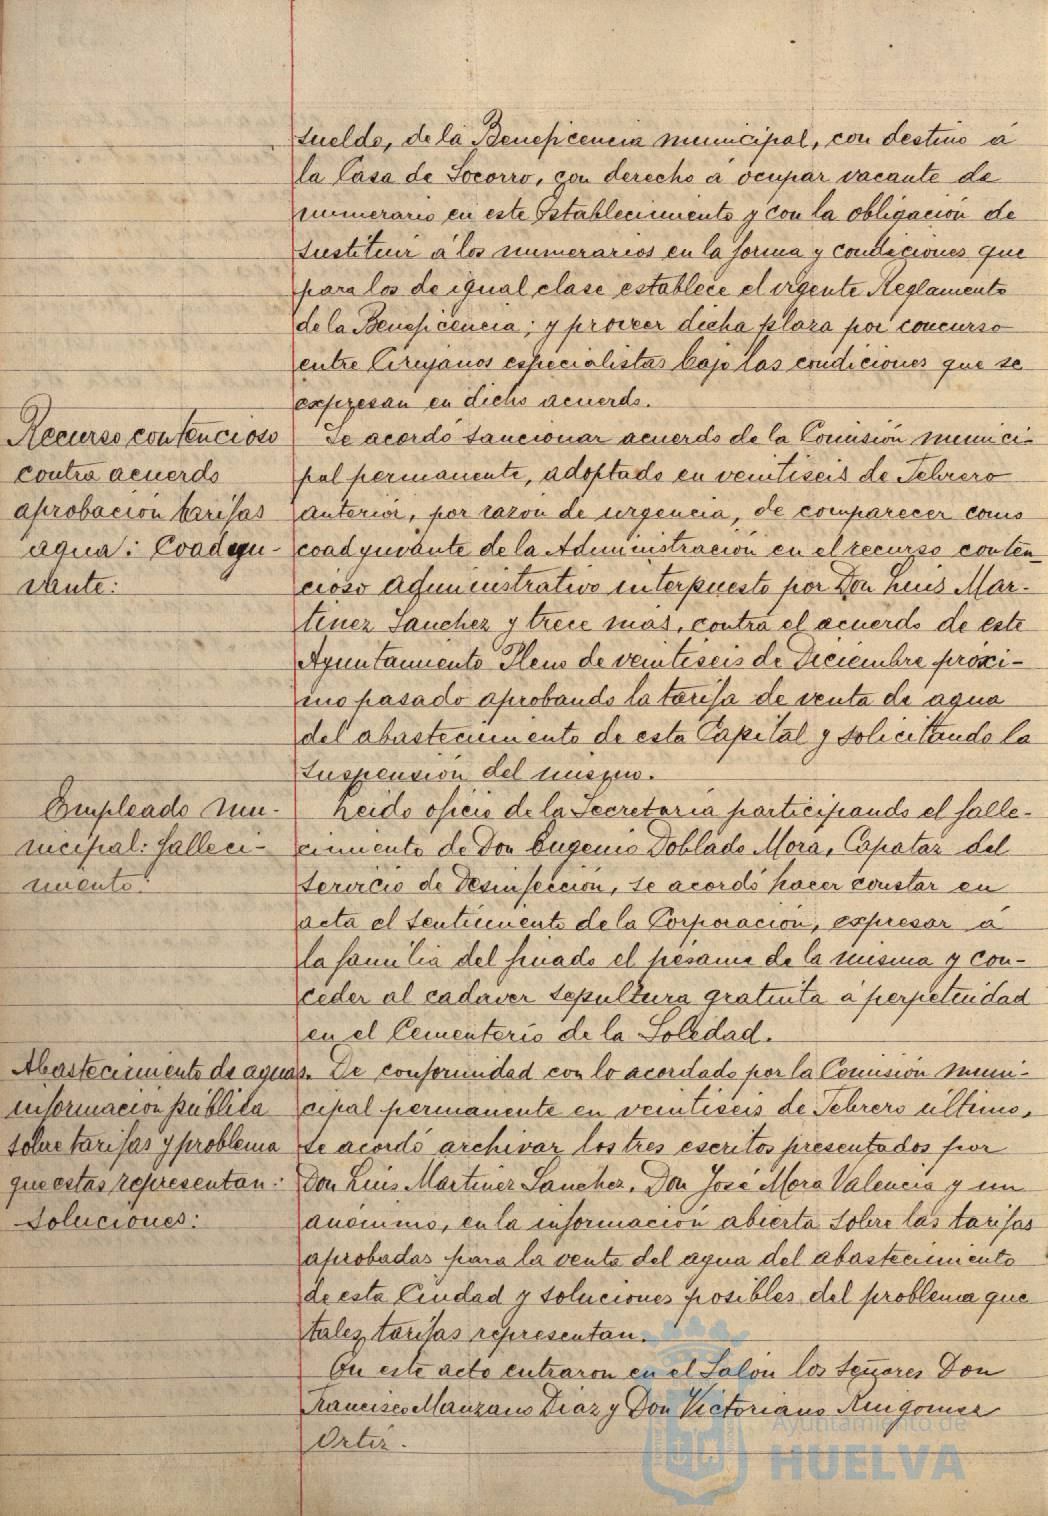 sueldo, de la Beneficencia municipal, con destino á
la Casa de Socorro, con derecho á ocupar vacante de
numerario en este Establecimiento y con la obligación de
sustituir á los numerarios en la forma y condiciones que
para los de igual clase establece el vigente Reglamento
de la Beneficencia; y proveer dicha plaza por concurso
entre Cirujanos especialistas bajo las condiciones que se
expresan en dicho acuerdo.
Recurso contencioso
contra acuerdo
aprobación tarifas
agua: Coadyu-
vante:
Se acordó sancionar acuerdo de la Comisión munici-
pal permanente, adoptado en veintiseis de Febrero
anterior, por razón de urgencia, de comparecer como
coadyuvante de la Administración en el recurso conten-
cioso administrativo interpuesto por Don Luis Mar-
tinez Sanchez y trece mas, contra el acuerdo de este
Ayuntamiento Pleno de veintiseis de Diciembre próxi-
mo pasado aprobando la tarifa de venta de agua
del abastecimiento de esta Capital y solicitando la
suspensión del mismo.
Empleado mu-
nicipal: falleci-
miento:
Leido oficio de la Secretaría participando el falle-
cimiento de Don Eugenio Doblado Mora, Capataz del
servicio de Desinfección, se acordó hacer constar en
acta el sentimiento de la Corporación, expresar á
la familia del finado el pésame de la misma y con-
ceder al cadaver sepultura gratuita á perpetuidad
en el Cementerio de la Soledad.
Abastecimiento de aguas.
información pública
sobre tarifas y problema
que estas representan:
soluciones:
De conformidad con lo acordado por la Comisión muni-
cipal permanente en veintiseis de Febrero último,
se acordó archivar los tres escritos presentados por
Don Luis Martinez Sanchez, Don José Mora Valencia y un
anónimo, en la información abierta sobre las tarifas
aprobadas para la venta del agua del abastecimiento
de esta Ciudad y soluciones posibles del problema que
tales tarifas representan.
En este acto entraron en el Salón los señores Don
Francisco Manzano Diaz y Don Victoriano Ruigomez
Ortiz.
Ayuntamiento de
HUELVA